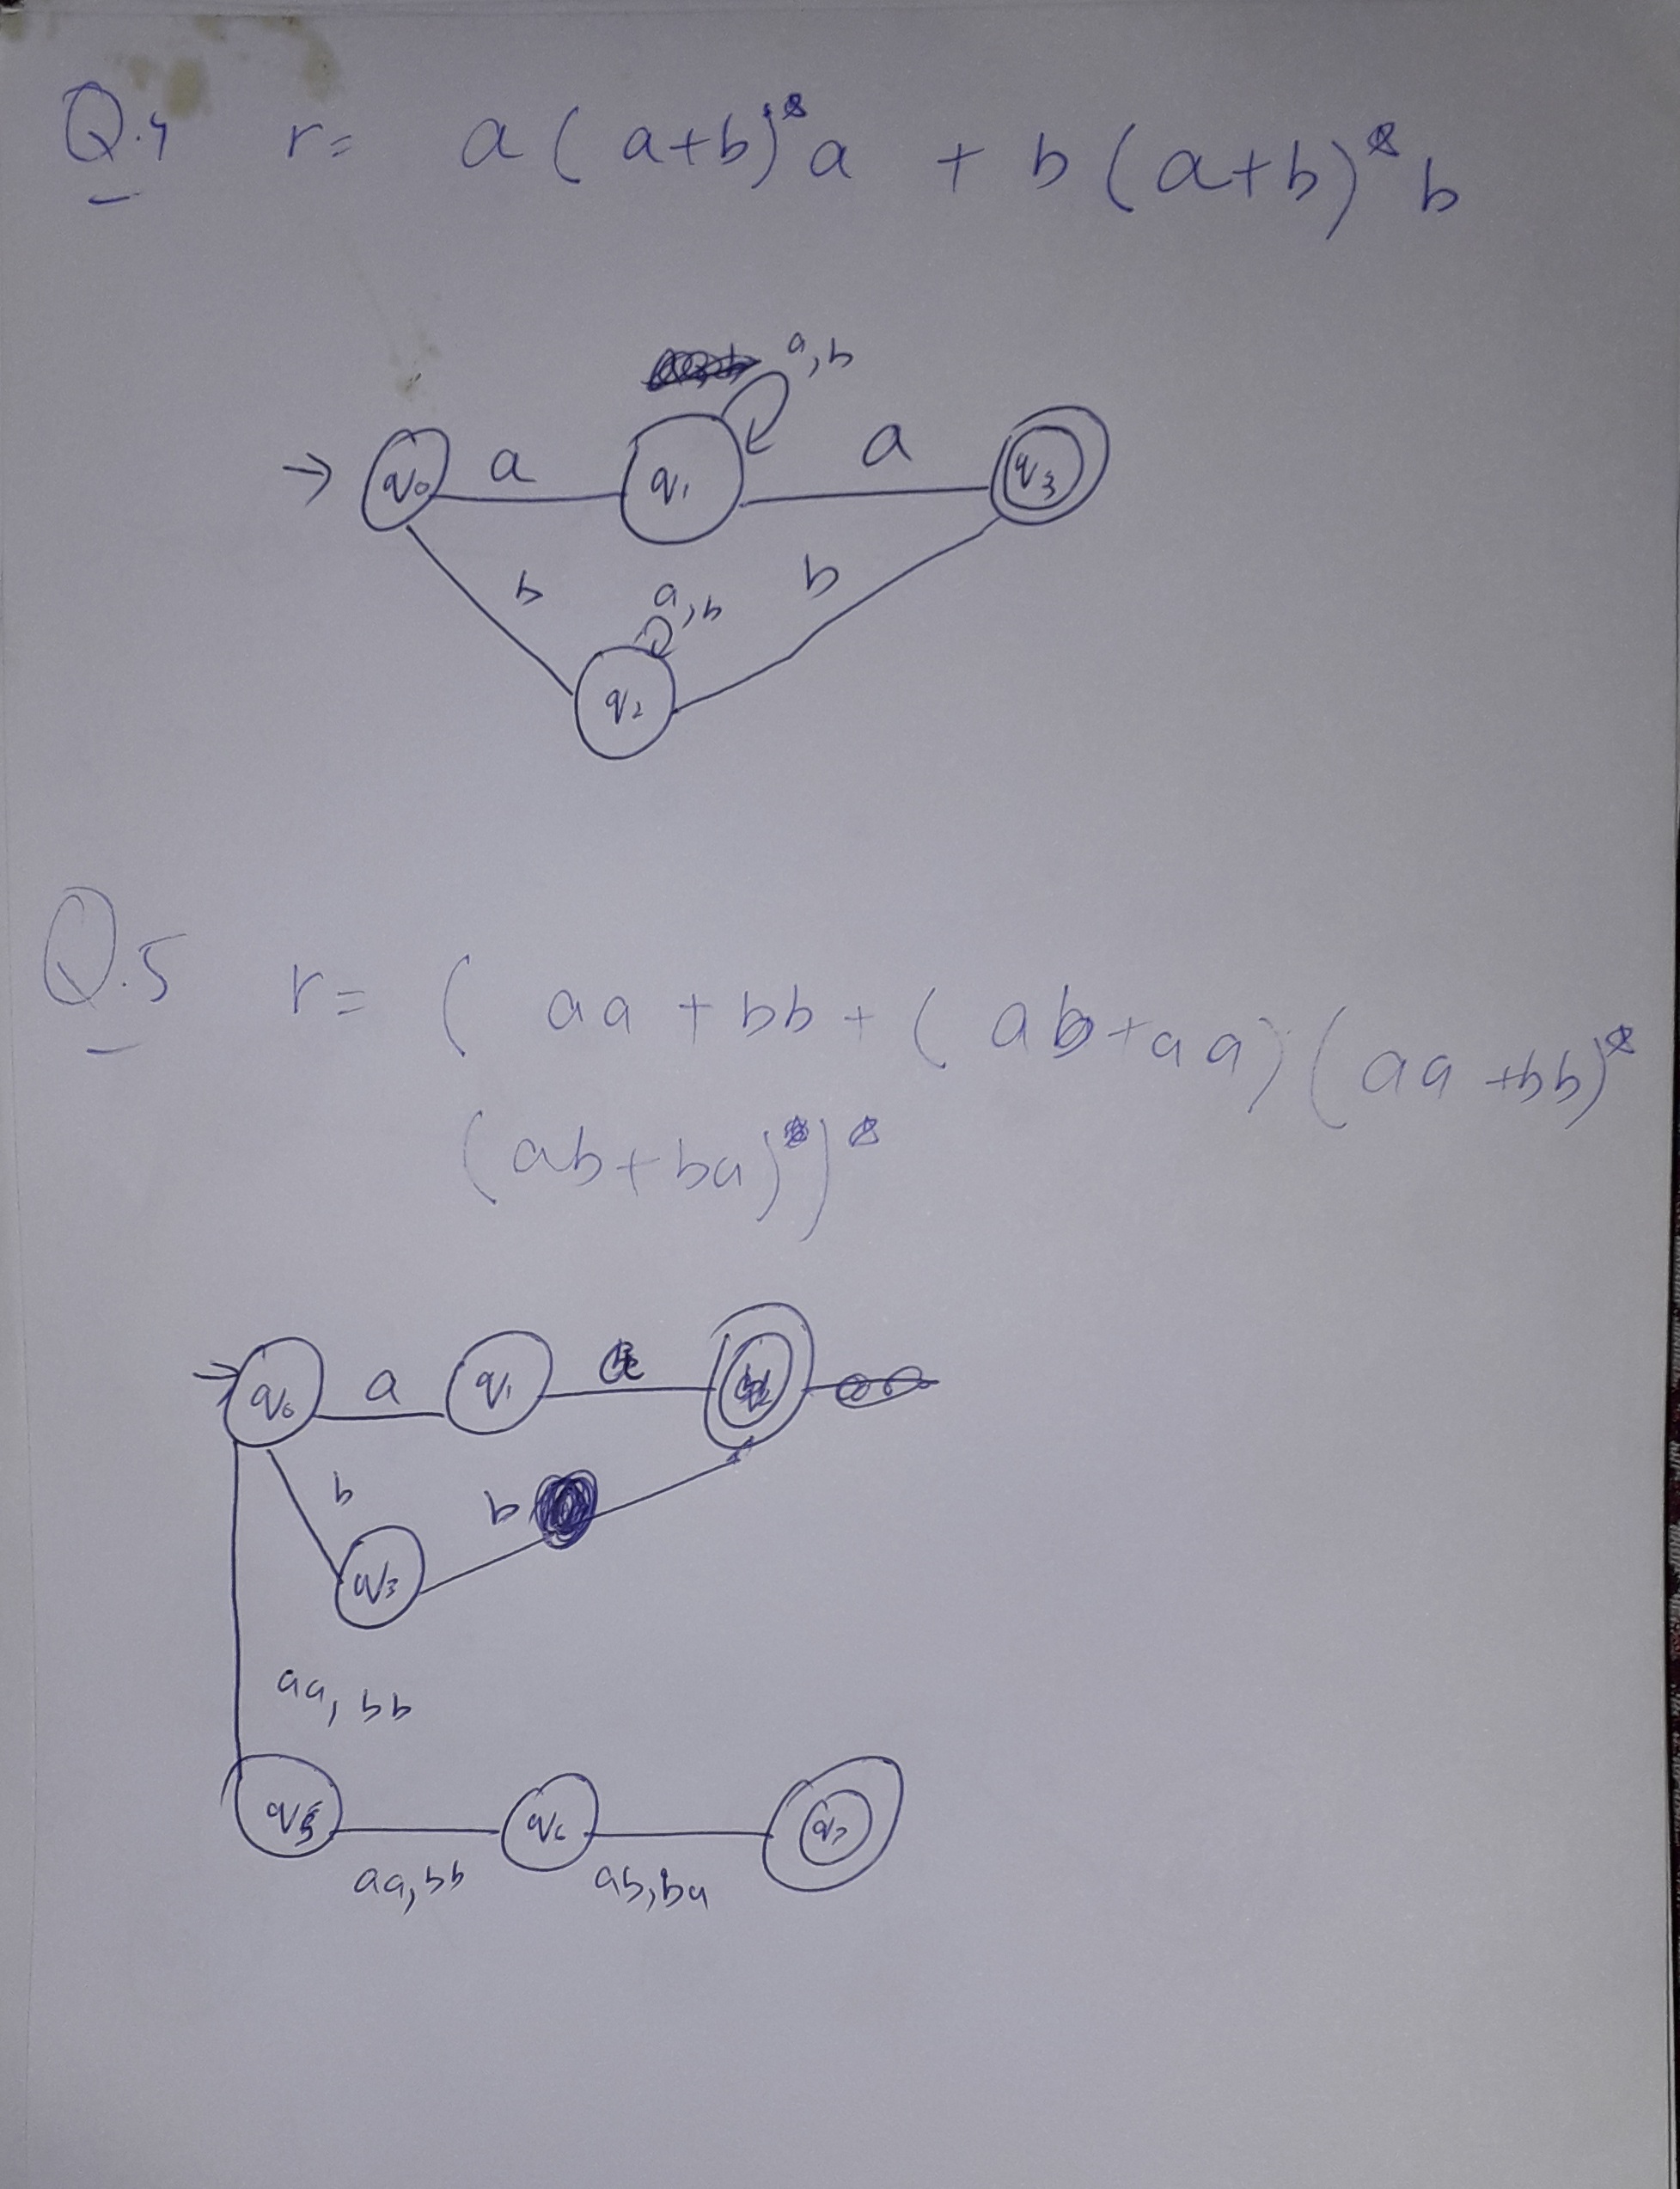 Q.4 r= a(a+b)*a + b(a+b)*b
a,b
q0 a q1 a q3
b a,b b
q2
Q.5 r= (aa+bb+(ab+aa)(aa+bb)*
(ab+ba)*)*
q0 a q1
b b
q3
aa, bb
q5 q6 q7
aa,bb ab,ba